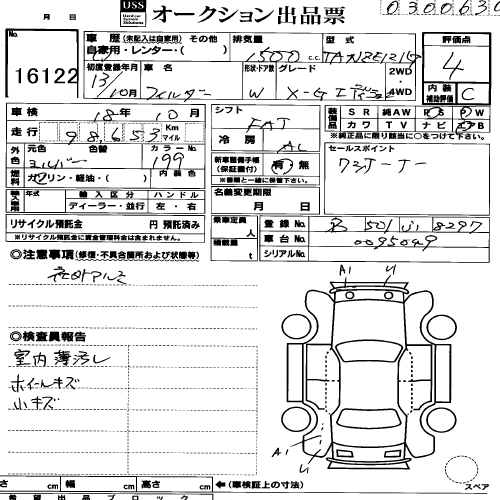 月 日
USS オークション出品票
No.
16122
車歴 (未記入は自家用) その他
自家用・レンター・( )
排気量
1500 c.c.
初度登録年月
13/10月
車名
フィルダー
形状・ドア数
W
グレード
2WD
4WD
評価点
4
内装
補助評価
C
車検
18年10月
走行
98,653 Km マイル
シフト
FAT
冷房
AC
装備品
SR 純AW PS PW
カワ TV ナビ エアB
※純正品に限り該当に○をつけて下さい
セールスポイント
外色
元色 色替
シルバー
カラーNo.
199
燃料
ガソリン・軽油・( )
内装色
新車整備手帳
(保証書付)
有・無
輸入車
年式
輸入区分
ディーラー・並行
ハンドル
左・右
名義変更期限
月 日
リサイクル預託金 円 預託済み
※リサイクル預託金に資金管理料金は含まれません。
乗車定員 人
積載量 t
登録No.
501 8297
車台No.
0095049
シリアルNo.
◎注意事項 (修復・不具合箇所および状態等)
社外アルミ
◎検査員報告
室内薄汚れ
ホイールキズ
小キズ
A1
U
A1
U
スペア
さ cm 幅 cm 高さ cm ←(車検証上の寸法)